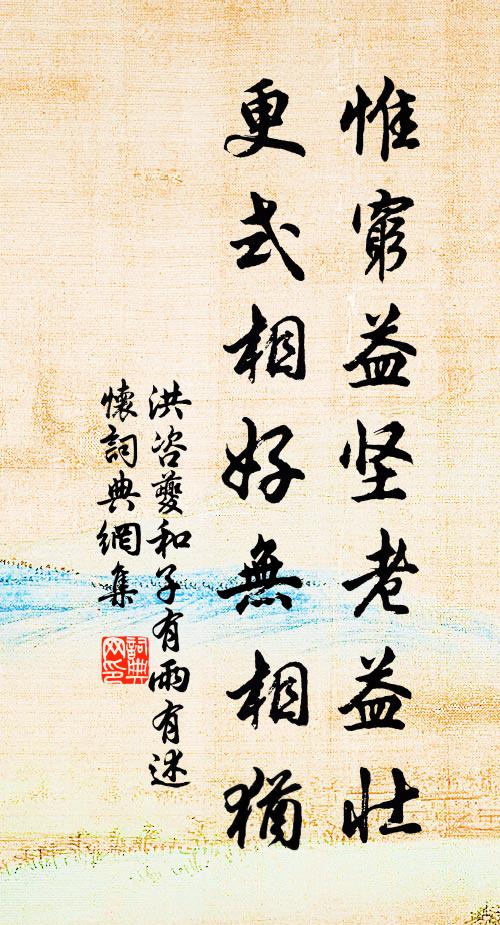 惟窮益坚老益壮
更式相好無相猶
洪咨夔和子有雨有述
懷詞典網集
詞典
网印